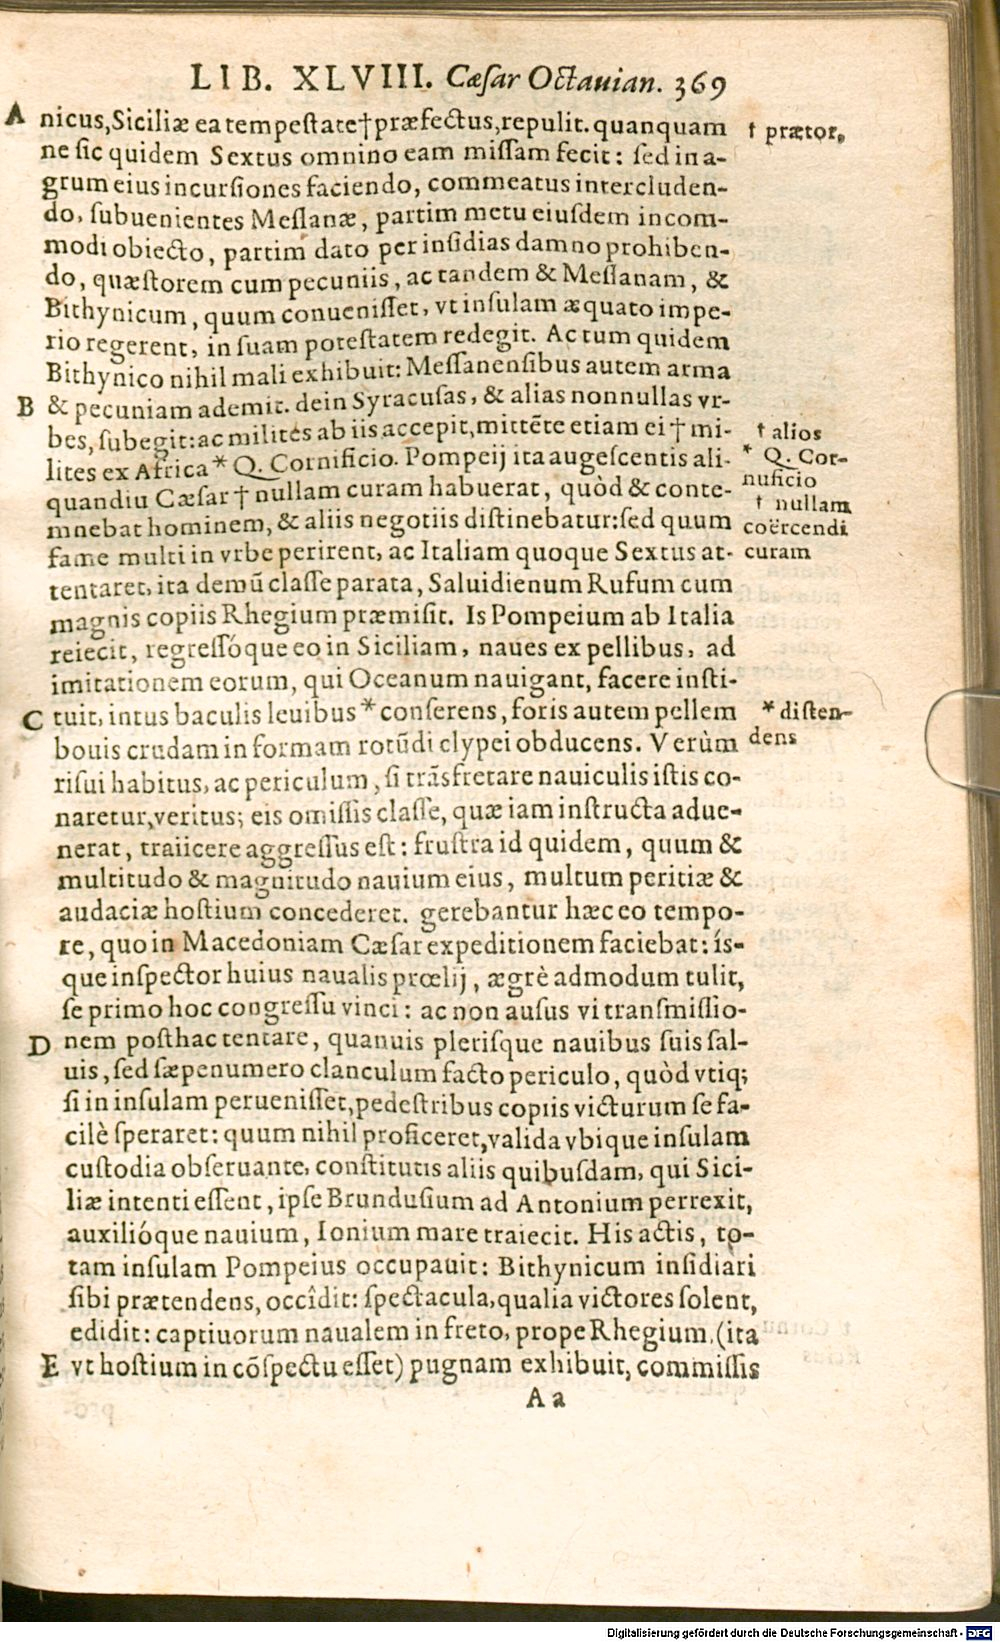 LIB. XLVIII. Cæſar Octauian. 369
A nicus, Siciliæ ea tempeſtate † præfectus, repulit. quanquam
† prætor,
ne ſic quidem Sextus omnino eam miſſam fecit: ſed in a-
grum eius incurſiones faciendo, commeatus intercluden-
do, ſubuenientes Meſſanæ, partim metu eiuſdem incom-
modi obiecto, partim dato per inſidias damno prohiben-
do, quæſtorem cum pecuniis, ac tandem & Meſſanam, &
Bithynicum, quum conueniſſet, vt inſulam æquato impe-
rio regerent, in ſuam poteſtatem redegit. Ac tum quidem
Bithynico nihil mali exhibuit: Meſſanenſibus autem arma
B & pecuniam ademit. dein Syracuſas, & alias nonnullas vr-
bes, ſubegit: ac milites ab iis accepit, mittēte etiam ei † mi-
† alios
lites ex Africa * Q. Cornificio. Pompeij ita augeſcentis ali-
* Q. Cor-
nuficio
quandiu Cæſar † nullam curam habuerat, quòd & conte-
† nullam
mnebat hominem, & aliis negotiis diſtinebatur: ſed quum
coërcendi
fame multi in vrbe perirent, ac Italiam quoque Sextus at-
curam
tentaret, ita demū claſſe parata, Saluidienum Rufum cum
magnis copiis Rhegium præmiſit. Is Pompeium ab Italia
reiecit, regreſſóque eo in Siciliam, naues ex pellibus, ad
imitationem eorum, qui Oceanum nauigant, facere inſti-
C tuit, intus baculis leuibus * conſerens, foris autem pellem
* diſten-
dens
bouis crudam in formam rotūdi clypei obducens. Verùm
riſui habitus, ac periculum, ſi trāsfretare nauiculis iſtis co-
naretur, veritus; eis omiſſis claſſe, quæ iam inſtructa adue-
nerat, traiicere aggreſſus eſt: fruſtra id quidem, quum &
multitudo & magnitudo nauium eius, multum peritiæ &
audaciæ hoſtium concederet. gerebantur hæc eo tempo-
re, quo in Macedoniam Cæſar expeditionem faciebat: ís-
que inſpector huius naualis prœlij, ægrè admodum tulit,
ſe primo hoc congreſſu vinci: ac non auſus vi tranſmiſſio-
D nem poſthac tentare, quanuis pleriſque nauibus ſuis ſal-
uis, ſed ſæpenumero clanculum facto periculo, quòd vtiq;
ſi in inſulam perueniſſet, pedeſtribus copiis victurum ſe fa-
cilè ſperaret: quum nihil proficeret, valida vbique inſulam
cuſtodia obſeruante, conſtitutis aliis quibuſdam, qui Sici-
liæ intenti eſſent, ipſe Brunduſium ad Antonium perrexit,
auxilióque nauium, Ionium mare traiecit. His actis, to-
tam inſulam Pompeius occupauit: Bithynicum inſidiari
ſibi prætendens, occîdit: ſpectacula, qualia victores ſolent,
edidit: captiuorum naualem in freto, prope Rhegium, (ita
E vt hoſtium in cōſpectu eſſet) pugnam exhibuit, commiſſis
Aa
Digitalisierung gefördert durch die Deutsche Forschungsgemeinschaft - DFG